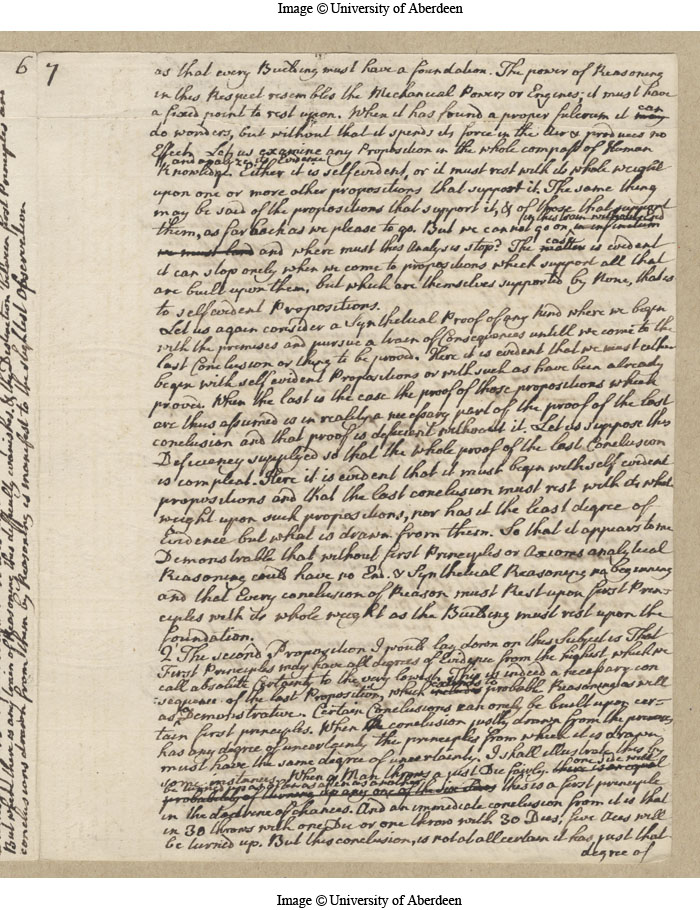 Image © University of Aberdeen
6 7
as that every Building must have a foundation. The power of Reasoning
in this Respect resembles the Mechanical Powers or Engines; it must have
a fixed point to rest upon. When it has found a proper fulcrum it can
do wonders, but without that it spends its force in the Air & produces no
Effect. Let us examine any Proposition in the whole compass of Human
and analyze its Evidence
Knowledge. Either it is self evident, or it must rest with its whole weight
upon one or more other propositions that support it. The same thing
may be said of the propositions that support it, & of those that support
them, as far back as we please to go. But we cannot go on in this train without End
we must land and where must this Analysis stop? The case is evident
it can stop onely when we come to propositions which support all that
are built upon them, but which are themselves supported by None, that is
to self evident Propositions.
Let us again consider a Synthetical Proof of any kind where we begin
with the premises and pursue a train of Consequences untill we come to the
last Conclusion or thing to be proved. Here it is evident that we must either
begin with self evident Propositions or with such as have been already
proved. When the last is the case the proof of those propositions which
are thus assumed is in reality a necessary part of the proof of the last
conclusion and that proof is deficient without it. Let us suppose this
Deficiency supplyed so that the whole proof of the last Conclusion
is compleat. Here it is evident that it must begin with self evident
propositions and that the last conclusion must rest with its whole
weight upon such propositions, nor has it the least degree of
Evidence but what is drawn from them. So that it appears to me
Demonstrable that without first Principles or Axioms analytical
Reasoning could have no End, & Synthetical Reasoning no beginning
and that Every conclusion of Reason must Rest upon first Prin-
ciples with its whole weight as the Building must rest upon the
foundation.
2 The second Proposition I would lay down on this Subject is That
First Principles may have all degrees of Evidence from the highest which we
call absolute Certainty to the very lowest. This is indeed a necessary con
sequence of the last Proposition, which extends to probable Reasoning as well
as Demonstrative. Certain Conclusions can onely be built upon cer-
tain first principles. When the conclusion justly drawn from the premises
has any degree of uncertainty the principles from which it is drawn
must have the same degree of uncertainty. I shall illustrate this by
some instances. When a Man throws a just Die fairly one side will
be turned up as often as another this is a first principle
in the doctrine of chances. And an immediate conclusion from it is that
in 30 throws with one Die or one throw with 30 Dies, five Aces will
be turned up. But this conclusion, is not at all certain it has just that
degree of
conclusions drawn from them by Reasoning is manifest to the slightest observation.
Image © University of Aberdeen